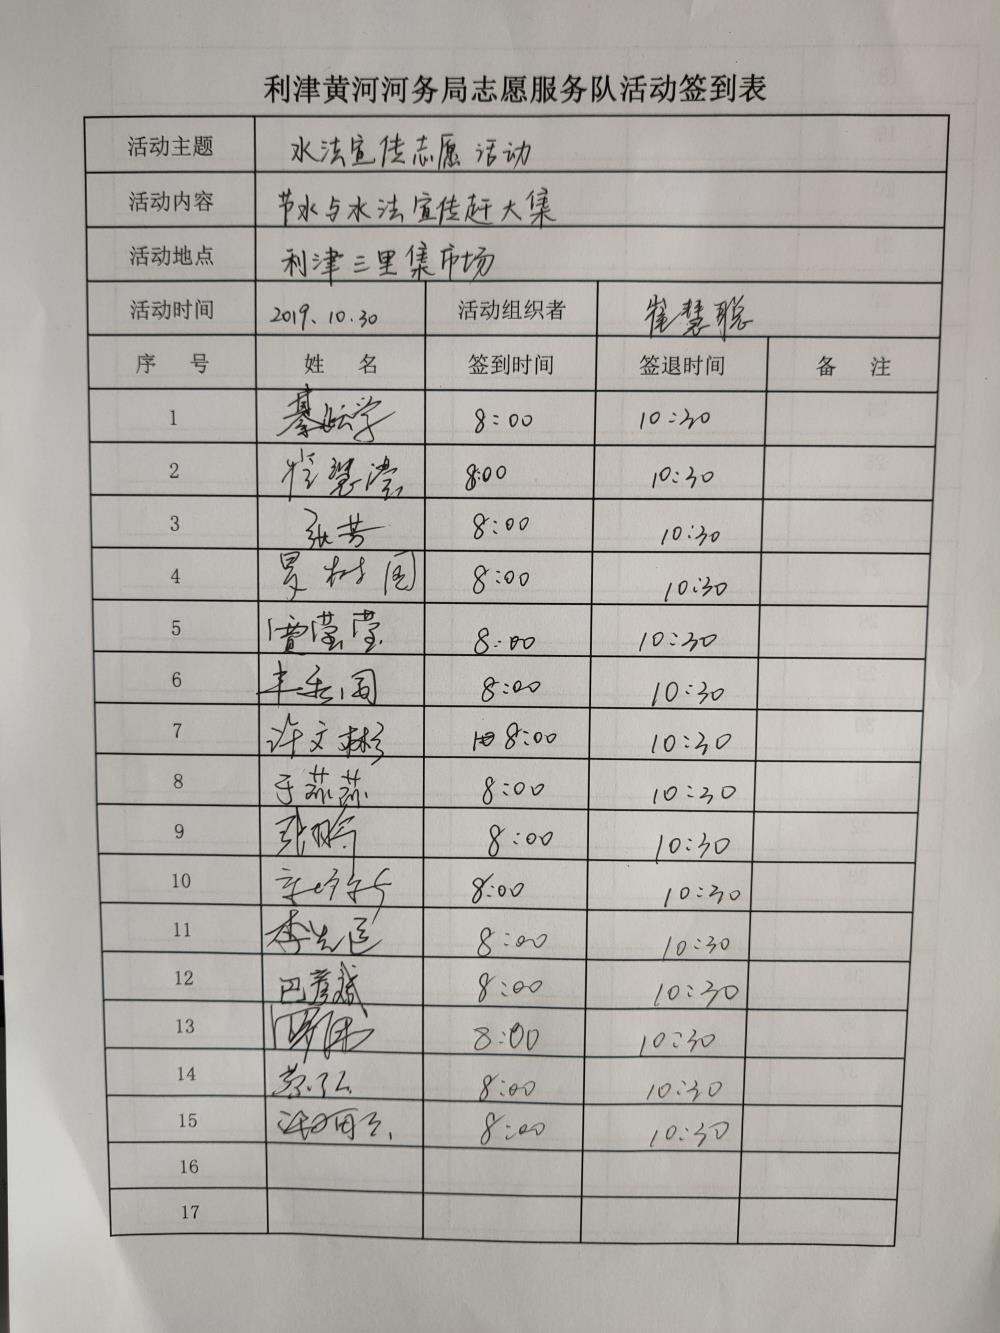 利津黄河河务局志愿服务队活动签到表
活动主题 水法宣传志愿活动
活动内容 节水与水法宣传赶大集
活动地点 利津三里集市场
活动时间 2019.10.30 活动组织者 崔慧聪
序 号 姓 名 签到时间 签退时间 备 注
1 8:00 10:30
2 崔慧滢 8:00 10:30
3 张芳 8:00 10:30
4 树国 8:00 10:30
5 贾莹莹 8:00 10:30
6 8:00 10:30
7 许文彬 8:00 10:30
8 于蒜蒜 8:00 10:30
9 8:00 10:30
10 8:00 10:30
11 李先臣 8:00 10:30
12 巴彦斌 8:00 10:30
13 8:00 10:30
14 8:00 10:30
15 8:00 10:30
16
17